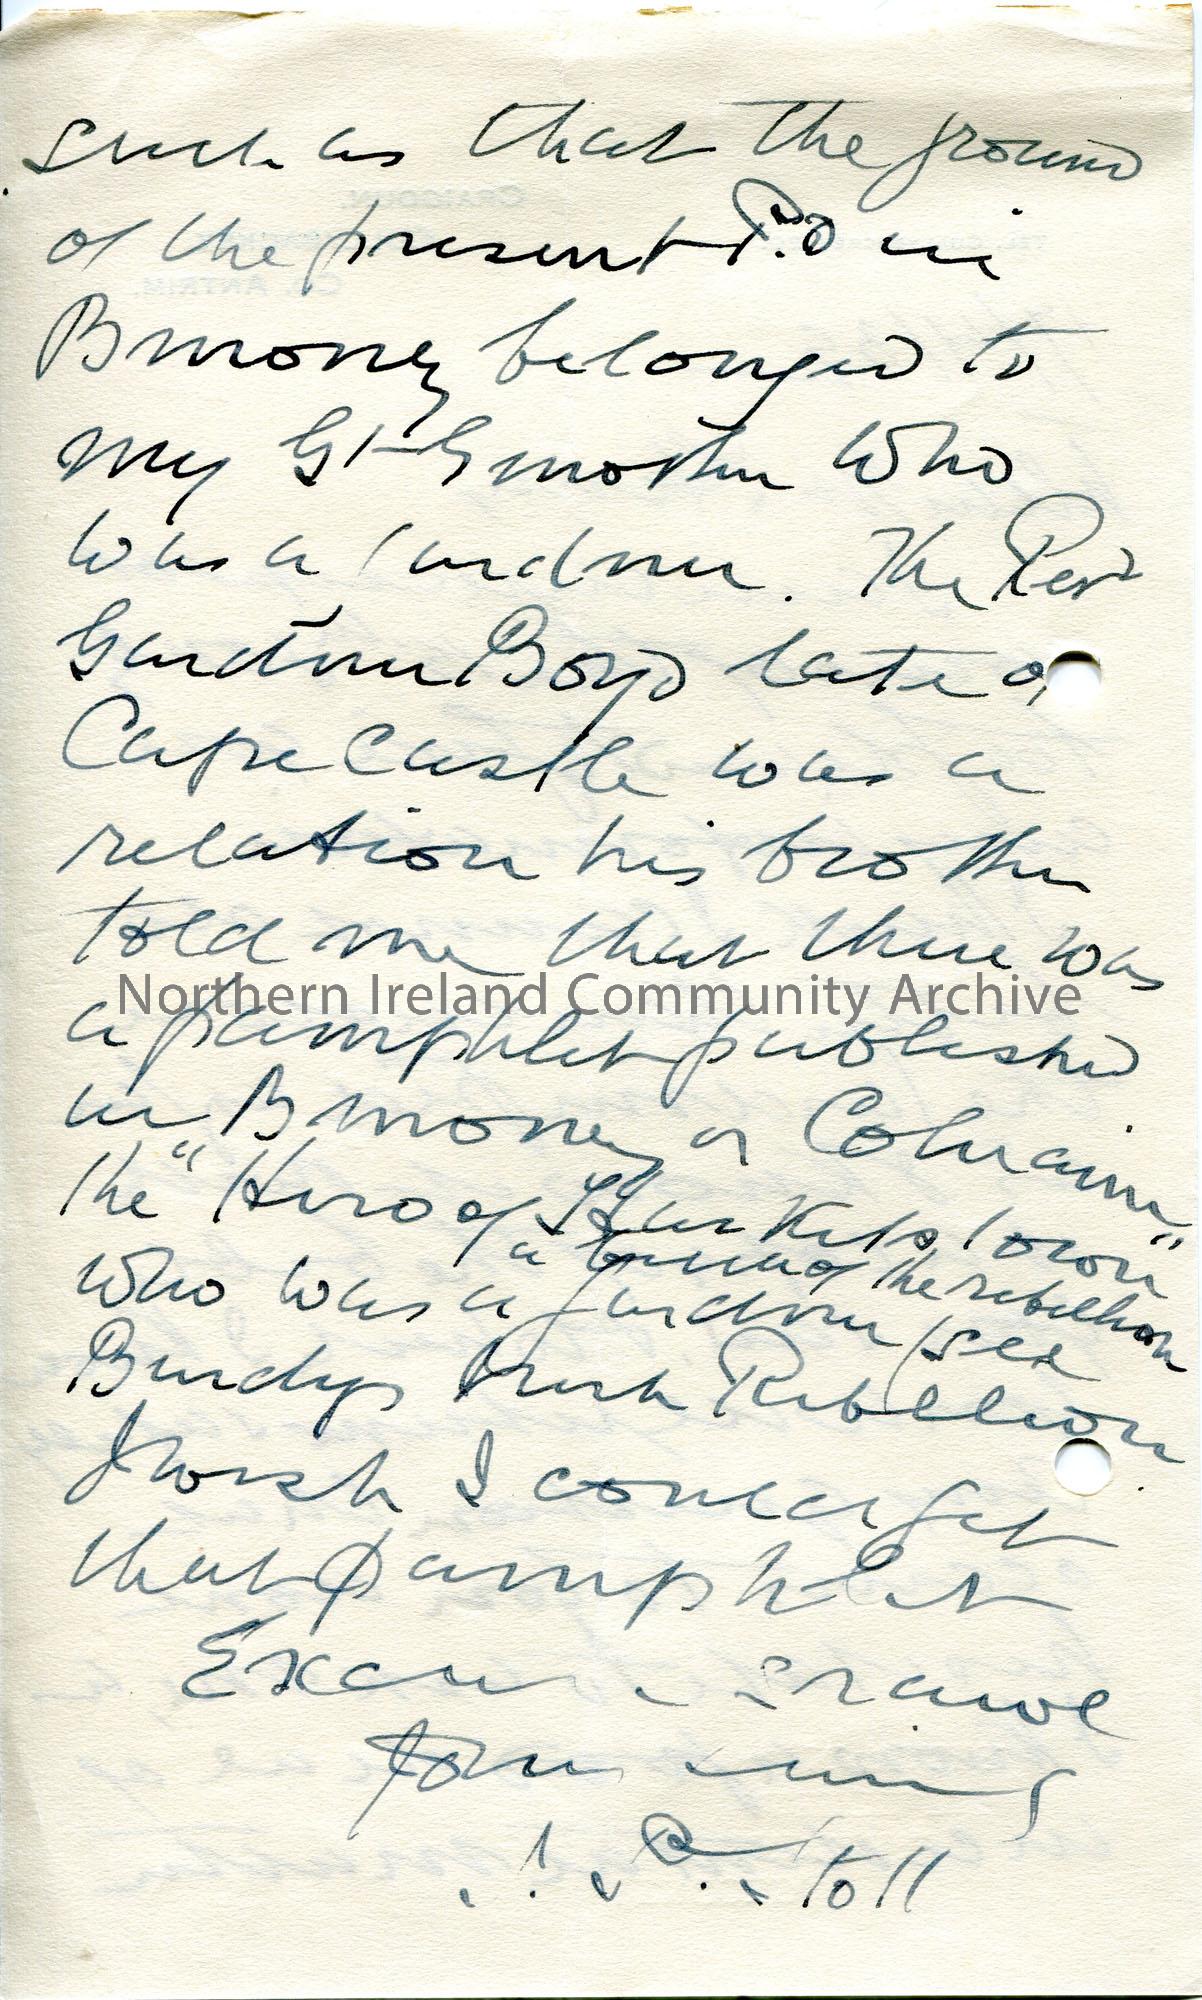 such as that the ground
of the present P.O in
Bmoney belonged to
my Gt Gmother who
was a Gardner. The Revd
Gardner Boyd late of
Cape Castle was a
relation his brother
told me that there was
Northern Ireland Community Archive
a pamphlet published
in Bmoney or Colraine
the "Hero of Town"
a of the rebellion
who was a Gardner (see
Burdys Irish Rebellion
I wish I could get
that pamphlet
Excuse scrawl
Yours